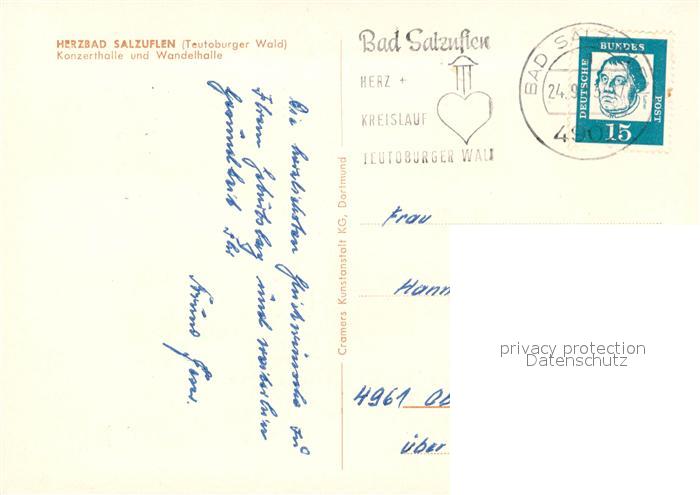 HERZBAD SALZUFLEN (Teutoburger Wald)
Konzerthalle und Wandelhalle
Die herzlichsten Glückwünsche zu
Ihrem Geburtstag und weiterhin
Gesundheit Ihr
Bruno
Cramers Kunstanstalt KG, Dortmund
Bad Salzuflen
HERZ +
KREISLAUF
TEUTOBURGER WALD
BAD SALZ
24.9
490
DEUTSCHE BUNDES POST
15
Frau
Hann
4961 Ob
über
privacy protection
Datenschutz